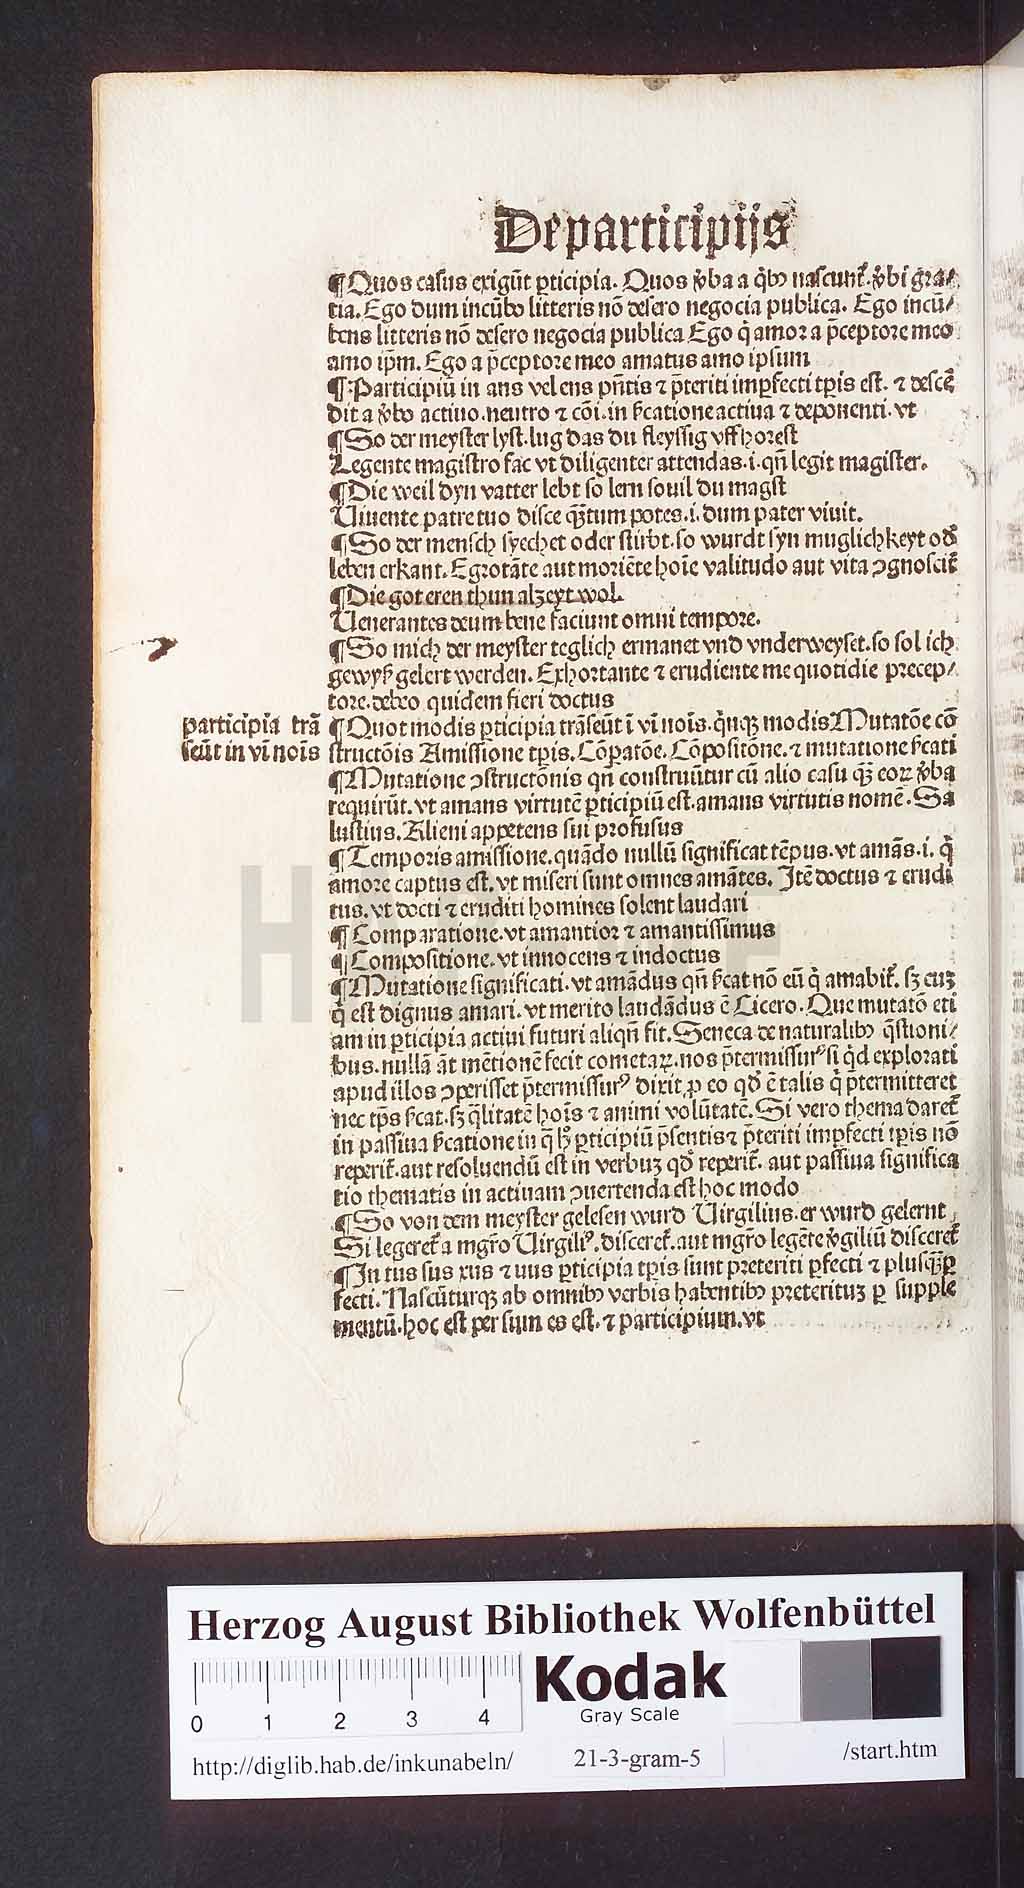 De participijs
¶ Quos casus exigūt p̲ticipia. Quos v̓ba a q̇bꝫ nascunt᷑. v̓bi gra⸗
tia. Ego dum incūbo litteris nō desero negocia publica. Ego incū⸗
bens litteris nō desero negocia publica Ego q̇ amor a p̄ceptore meo
amo ip̄m. Ego a p̄ceptore meo amatus amo ipsum
¶ Participiū in ans vel ens pn̄tis ⁊ p̄teriti imꝑfecti tꝑis est. ⁊ descē
dit a v̓bo actiuo. neutro ⁊ cōi. in ẜcatione actiua ⁊ deponenti. vt
¶ So der meyster lyst. lug das du fleyssig vff horest
Legente magistro fac vt diligenter attendas. i. qn̄ legit magister.
¶ Die weil dyn vatter lebt so lern souil du magst
Viuente patre tuo disce qȝtum potes. i. dum pater viuit.
¶ So der mensch syechet oder stirbt. so wurdt syn muglichkeyt od̓
leben erkant. Egrotāte aut moriēte hoīe valitudo aut vita ꝯgnoscit᷑
¶ Die got eren thun alzeyt wol.
Venerantes deum bene faciunt omni tempore.
¶ So mich der meyster teglich ermanet vnd vnderweyset. so sol ich
gewyß gelert werden. Exhortante ⁊ erudiente me quotidie precep⸗
tore. debeo quidem fieri doctus
participia trā
seūt in vī noīs
¶ Quot modis ꝑticipia trāseūt ī vī noīs. q̇nqȝ modis Mutatōe cō
structōis Amissione tꝑis. Cōꝑatōe. Cōpositōne. ⁊ mutatione ẜcati
¶ Mutatione ꝯstructōnis qn̄ construūtur cū alio casu qȝ eoꝝ v̓ba
requirūt. vt amans virtutē ꝑticipiū est. amans virtutis nomē. Sa
lustius. Alieni appetens sui profusus
¶ Temporis amissione. quādo nullū significat tēpus. vt amās. i. q̇
amore captus est. vt miseri sunt omnes amātes. Itē doctus ⁊ erudi
tus. vt docti ⁊ eruditi homines solent laudari
¶ Comparatione. vt amantior ⁊ amantissimus
¶ Compositione. vt innocens ⁊ indoctus
¶ Mutatione significati. vt amādus qn̄ ẜcat nō eū q̇ amabit᷑. sȝ euȝ
q̇ est dignus amari. vt merito laudādus ē Cicero. Que mutatō eti
am in ꝑticipia actiui futuri aliqn̄ fit. Seneca de naturalibꝫ q̄stioni⸗
bus. nullā āt mētionē fecit cometaꝝ. nos p̄termissurꝰ si q̇d explorati
apud illos ꝯperisset p̄termissurꝰ dixit ꝓ eo qd̓ ē talis q̇ p̄termitteret
nec tp̄s ẜcat. sȝ q̄litatē hoīs ⁊ animi volūtatē. Si vero thema daret᷑
in passiua ẜcatione in q̄ hꝰ ꝑticipiū p̄sentis ⁊ p̄teriti imꝑfecti tꝑis nō
reperit᷑. aut resoluendū est in verbuȝ qd̓ reperit᷑. aut passiua significa
tio thematis in actiuam ꝯuertenda est hoc modo
¶ So von dem meyster gelesen wurd Virgilius. er wurd gelernt
Si legeret᷑ a mgr̄o Virgiliꝰ. disceret᷑. aut mgr̄o legēte v̓giliū disceret᷑
¶ In tus sus xus ⁊ uus ꝑticipia tꝑis sunt preteriti ꝑfecti ⁊ plusqȝꝑ
fecti. Nascūturqȝ ab omnibꝫ verbis habentibꝫ preterituȝ ꝑ supple
mentū. hoc est per sum es est. ⁊ participium. vt
HAB
Herzog August Bibliothek Wolfenbüttel
0 1 2 3 4
Kodak
Gray Scale
http://diglib.hab.de/inkunabeln/
21-3-gram-5
/start.htm